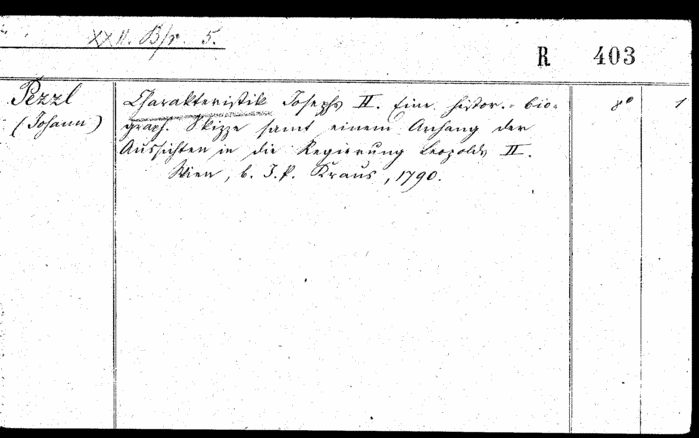 XXII. B/r. 5.
R 403
Pezzl
(Johann)
Charakteristik Josephs II. Eine histor.-bio-
graph. Skizze samt einem Anhang der
Aussichten in die Regierung Leopolds II.
Wien, b. J. P. Kraus, 1790.
8° 1